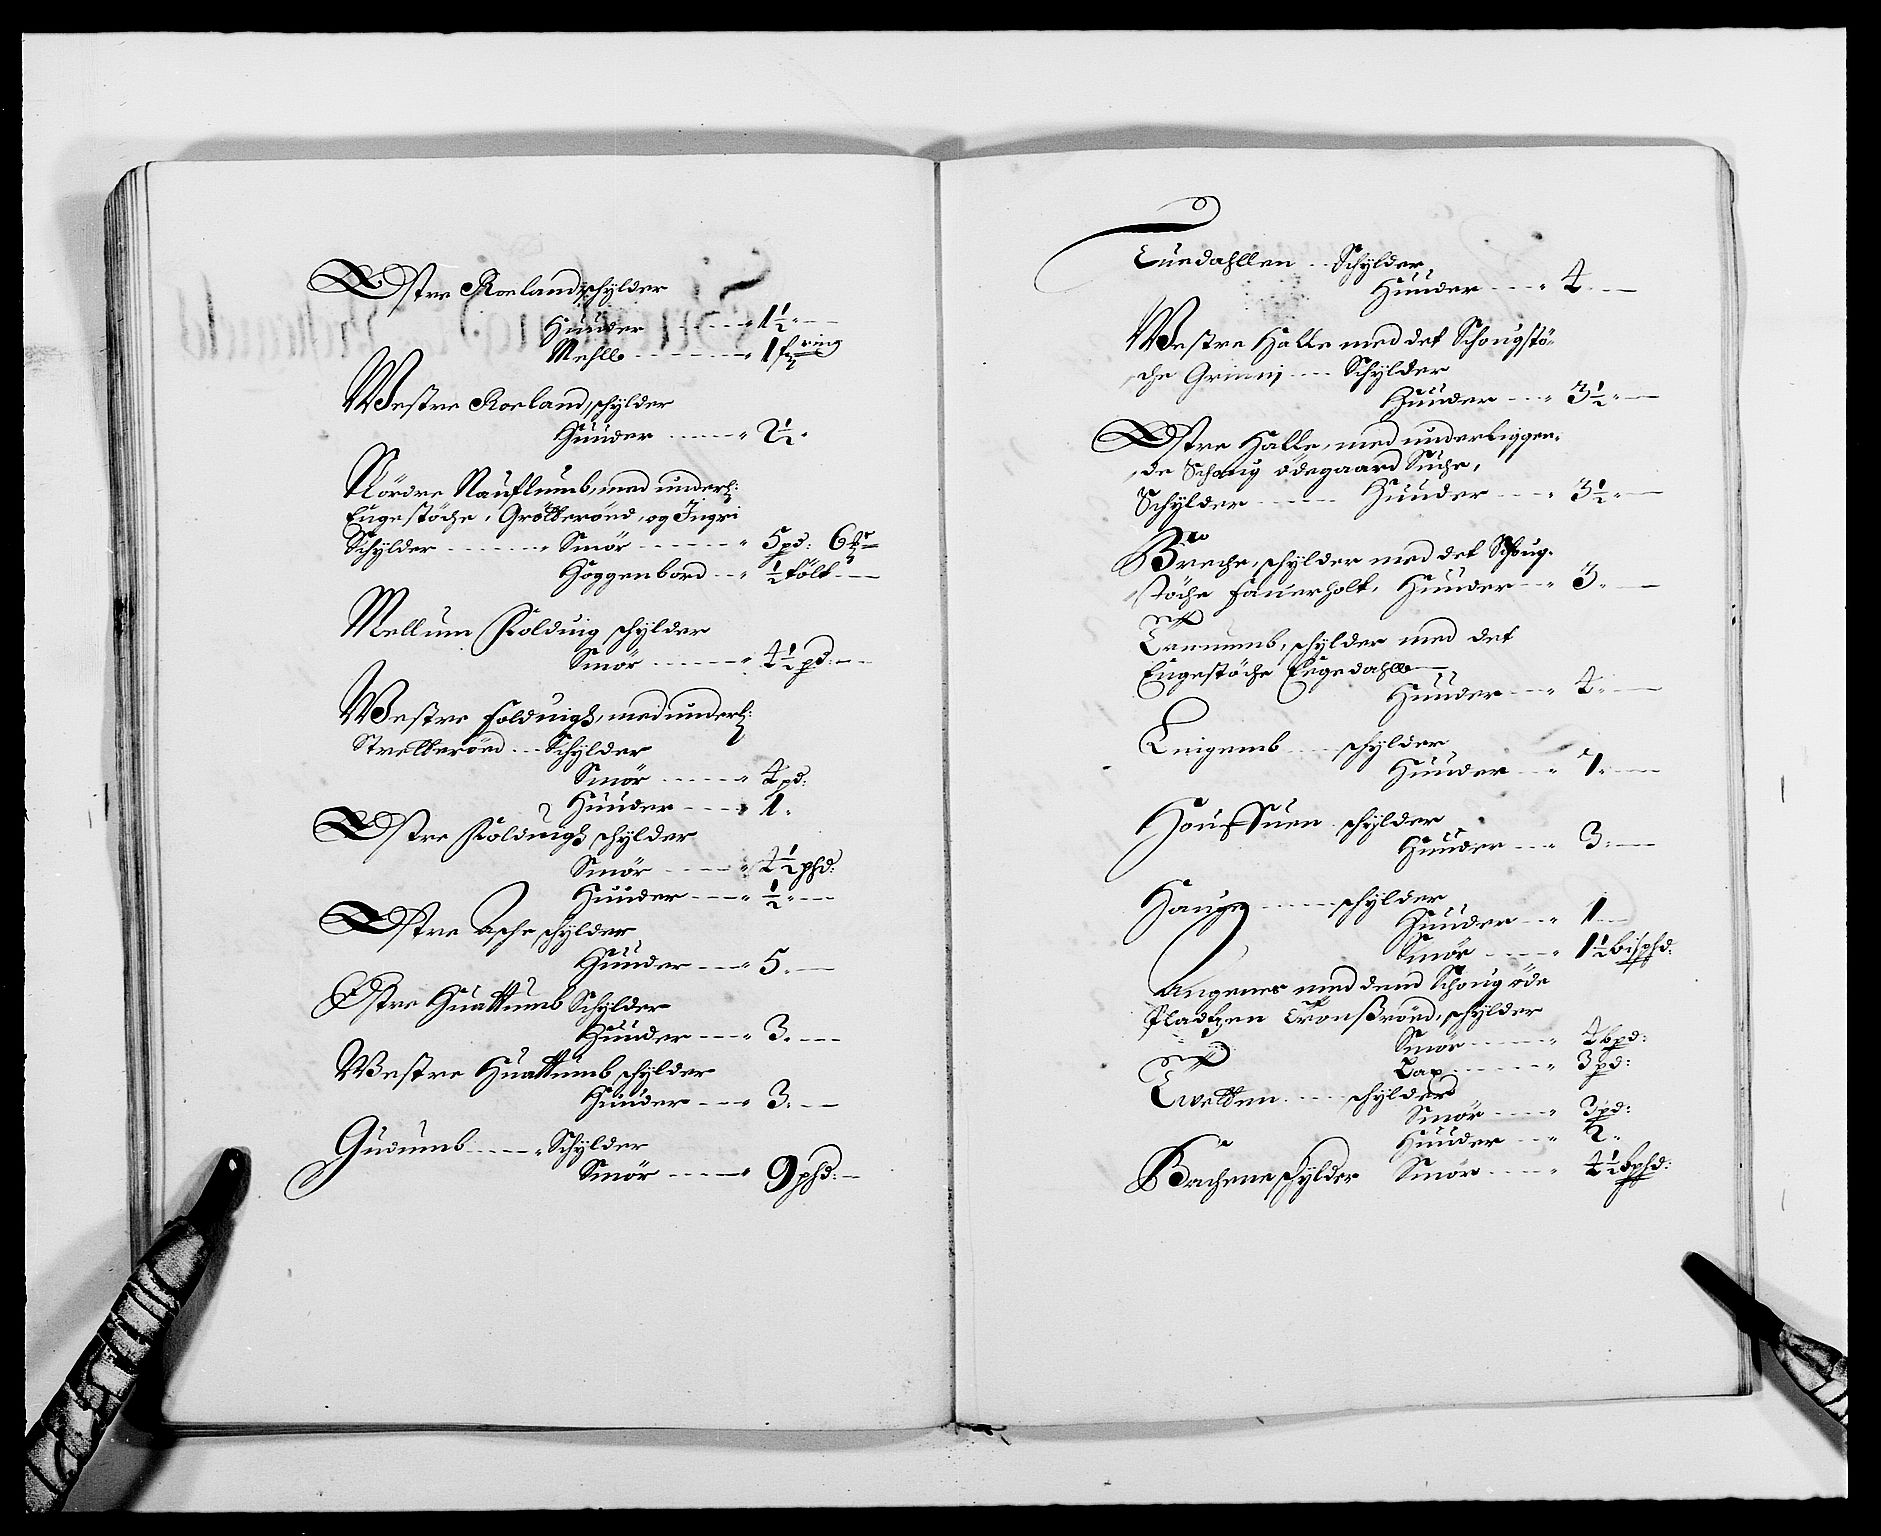 Østre Roeland schylder
Huuder ------ 1½ --
Mehll ------ 1 fring
Westre Roeland, schylder
Huuder ------ 2½
Nördre Nauflumb, med underl:
Engestöche, Grölleröed, og Ingri
Schylder ------ Smör ------ 5 pd: 6
Hoggenbord -- ½ tölt --
Mellum Folduig schylder
Smör ------ 4½ pd: --
Westre Folduigh, med underl:
Strelleröed --- Schylder
Smör ------ 4 pd:
Huuder ---- 1
Østre Folduigh schylder
Smör ---- 4½ phd:
Huuder --- ½ --
Østre Asche schylder
Huuder --- 5 --
Østre Huattumb Schylder
Huuder --- 3 --
Westre Huattumb schylder
Huuder --- 3 --
Gudumb ----- Schylder
Smör ---- 9 phd: --
Tuedahllen -- Schylder
Huuder ---- 4 --
Westre Halle med det Schougstö-
che Grinni --- Schylder
Huuder --- 3½ --
Østre Halle, med underliggen-
de Schoug ödegaard Suche,
Schylder ------ Huuder ---- 3½ --
Breche, schylder med det Schoug-
stöche Fauerholt, Huuder -- 3 --
Tremmb, schylder med det
Engestöche Engedahll
Huuder --- 4 --
Tuigemb --- schylder
Huuder --- 4 --
Houffsuen schylder
Huuder --- 3 --
Hauge ----- schylder
Huuder -- 1 --
Smör ---- 1½ bispd:
Angenes med dend Schoug öde
Pladtzen Tronßröed, schylder
Smör ----- 4 bpd:
Lax ------ 3 pd:
Tvetten ---- schylder
Smör ---- 3 pd:
Huuder -- 2
Bachene schylder Smör ---- 4½ bphd: